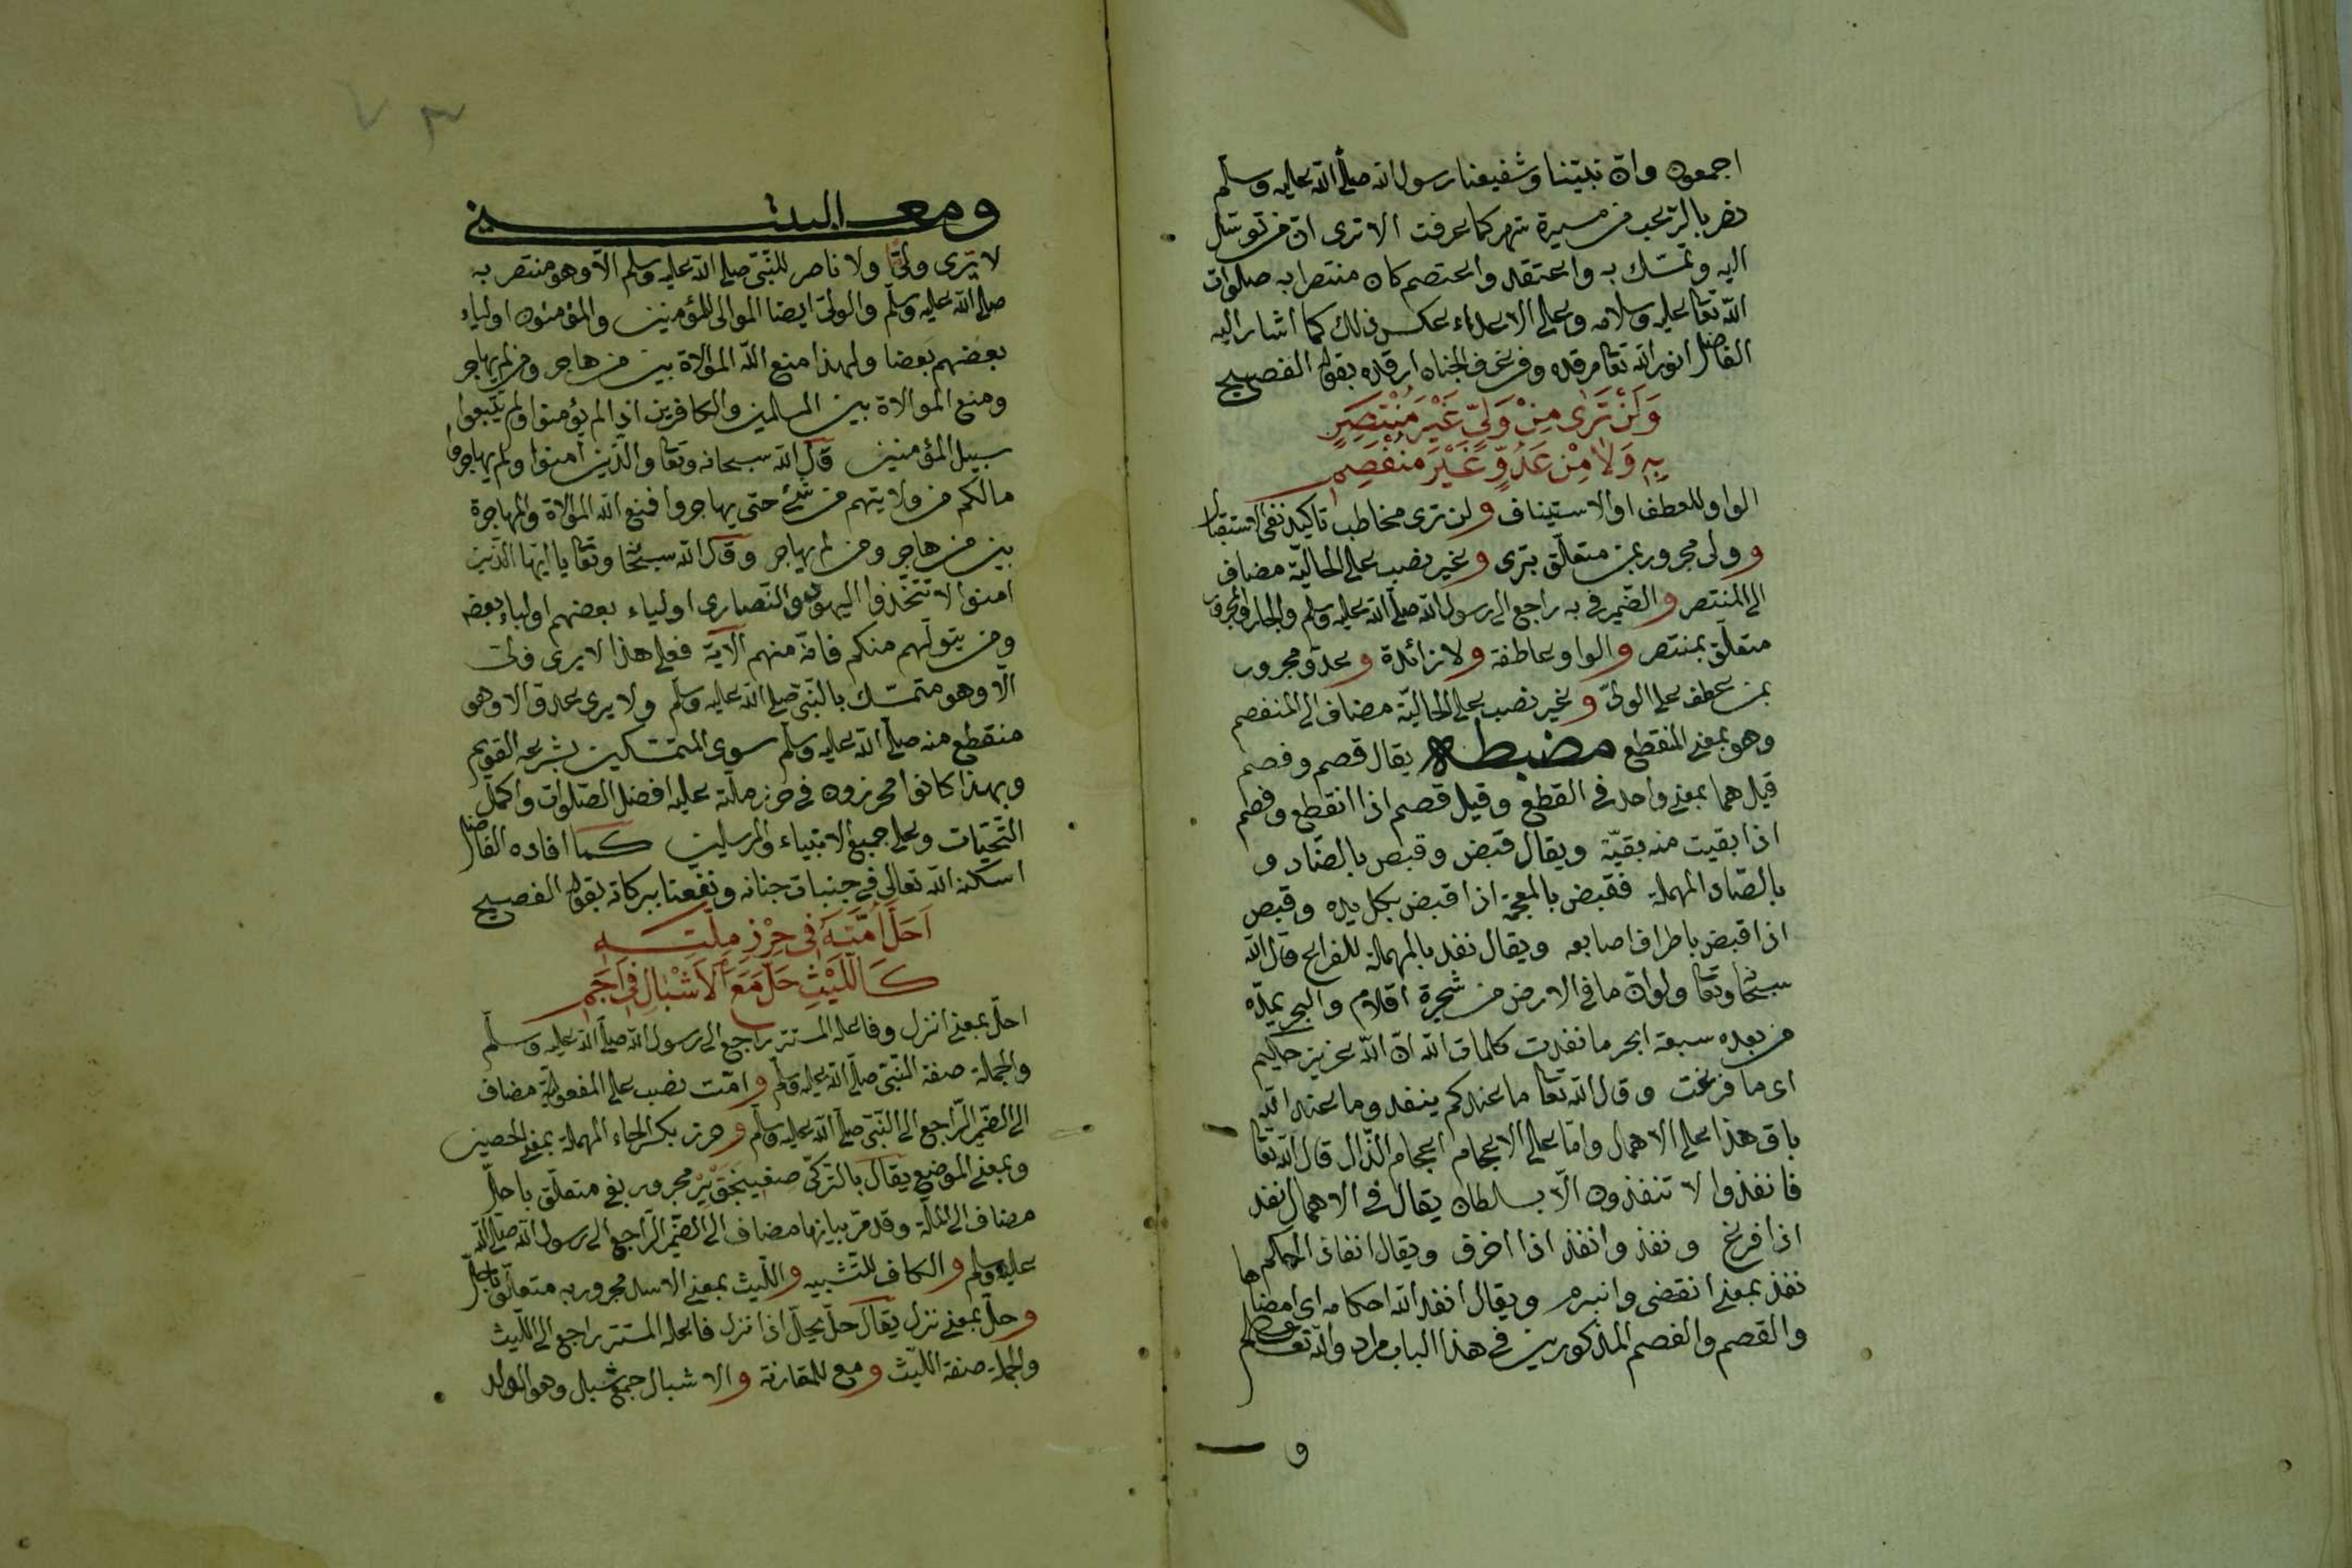 اجمعون وان نبيّنا وشفيعنا رسول الله صلّى الله عليه وسلّم
نصر بالرّعب من مسيرة شهر كما عرفت الا ترى ان من توسّل
اليه وتمسّك به واعتقد واعتصم كان منتصرا به صلوات
الله تعا عليه وسلامه وعلى الاعداء بعكس ذلك كما اشار اليه
الفاضل نور الله تعا مرقده وفى غرف الجنان ارقده بقوله الفصيح
وَلَنْ تَرٰى مِنْ وَلِيٍّ غَيْرَ مُنْتَصِرٍ
بِهٖ وَلَا مِنْ عَدُوٍّ غَيْرَ مُنْفَصِمِ
الواو للعطف او الاستيناف ولن ترى مخاطب تاكيد نفى استقبال
وولى مجرور بمن متعلّق بترى وغير نصب على الحاليّة مضاف
الى المنتصر والضّمير فى به راجع الى رسول الله صلّى الله عليه وسلّم والجار والمجرور
متعلّق بمنتصر والواو عاطفة ولا زائدة وعدوّ مجرور
بمن عطف على الولىّ وغير نصب على الحاليّة مضاف الى المنفصم
وهو بمعنى المنقطع مضبطه يقال قصم وفصم
قيل هما بمعنى واحد فى القطع وقيل قصم اذا انقطع وفصم
اذا بقيت منه بقيّة ويقال قبض وقبص بالضّاد و
بالصّاد المهملة فقبض بالمعجمة اذا قبض بكل يده وقبص
اذا قبض باطراف اصابعه ويقال نفد بالمهملة للفراغ قال الله
سبحا وتعا ولو ان ما فى الارض من شجرة اقلام والبحر يمدّه
من بعده سبعة ابحر ما نفدت كلمات الله ان الله عزيز حكيم
اى ما فرغت وقال الله تعا ما عندكم ينفد وما عند الله
باق هذا على الاهمال وامّا على الاعجام اعجام الذّال قال الله تعا
فانفذوا لا تنفذون الّا بسلطان يقال فى الاهمال نفد
اذا فرغ ونفذ وانفذ اذا اخرق ويقال انفاذ الحكم
نفذ بمعنى انقضى وانبرم ويقال انفذ الله احكامه اى امضاها
والقصم والفصم المذكورين فى هذا الباب مراد والله تعا اعلم
و
ومعـ البيتـ ـنى
لا ترى وليّا ولا ناصر للنّبىّ صلى الله عليه وسلم الّا وهو منتصر به
صلى الله عليه وسلّم والولىّ ايضا الموالى للمؤمنين والمؤمنون اولياء
بعضهم بعضا ولهذا منع الله الموالاة بين من هاجر ومن لم يهاجر
ومنع الموالاة بين المسلمين والكافرين اذا لم يؤمنوا ولم يتّبعوا
سبيل المؤمنين قال الله سبحانه وتعا والّذين امنوا ولم يهاجروا
مالكم من ولايتهم من شئ حتى يهاجروا فمنع الله الموالاة والمهاجرة
بين من هاجر ومن لم يهاجر وقال الله سبحا وتعا يا ايّها الّذين
امنوا لا تتّخذوا اليهود والنّصارى اولياء بعضهم اولياء بعض
ومن يتولّهم منكم فانّه منهم الآية فعلى هذا لا يرى ولىّ
الّا وهو متمسّك بالنّبىّ صلى الله عليه وسلّم ولا يرى عدوّ الا وهو
منقطع منه صلّى الله عليه وسلّم سوى المتمسّكين بشرعه القويم
وبهذا كانوا محرزون فى حرز ملّته عليه افضل الصّلوات واكمل
التّحيّات وعلى جميع الانبياء والمرسلين كما افاده الفاضل
اسكنه الله تعالى فى جنبات جنانه ونفعنا ببركاته بقوله الفصيح
اَحَلَّ اُمَّتَهُ فِى حِرْزِ مِلَّتِهٖ
كَاللَّيْثِ حَلَّ مَعَ الْاَشْبَالِ فِى اَجَمِ
احلّ بمعنى انزل وفاعله المستتر راجع الى رسول الله صلّى الله عليه وسلّم
والجملة صفة النّبىّ صلّى الله عليه وسلّم وامّت نصب على المفعوليّة مضاف
الى الضّمير الرّاجع الى النّبىّ صلّى الله عليه وسلّم وحرز بكسر الحاء المهملة بمعنى الحصين
وبمعنى الموضع يقال بالتركىّ صغينجق ير مجرور بفى متعلّق باحلّ
مضاف الى الملّة وقد مرّ بيانها مضاف الى الضّمير الرّاجع الى رسول الله صلّى الله
عليه وسلم والكاف للتّشبيه واللّيث بمعنى الاسد مجرور به متعلّق باحلّ
وحلّ بمعنى نزل يقال حلّ يحلّ اذا نزل فاعله المستتر راجع الى اللّيث
والجملة صفة اللّيث ومع للمقارنة والاشبال جمع شبل وهو الولد